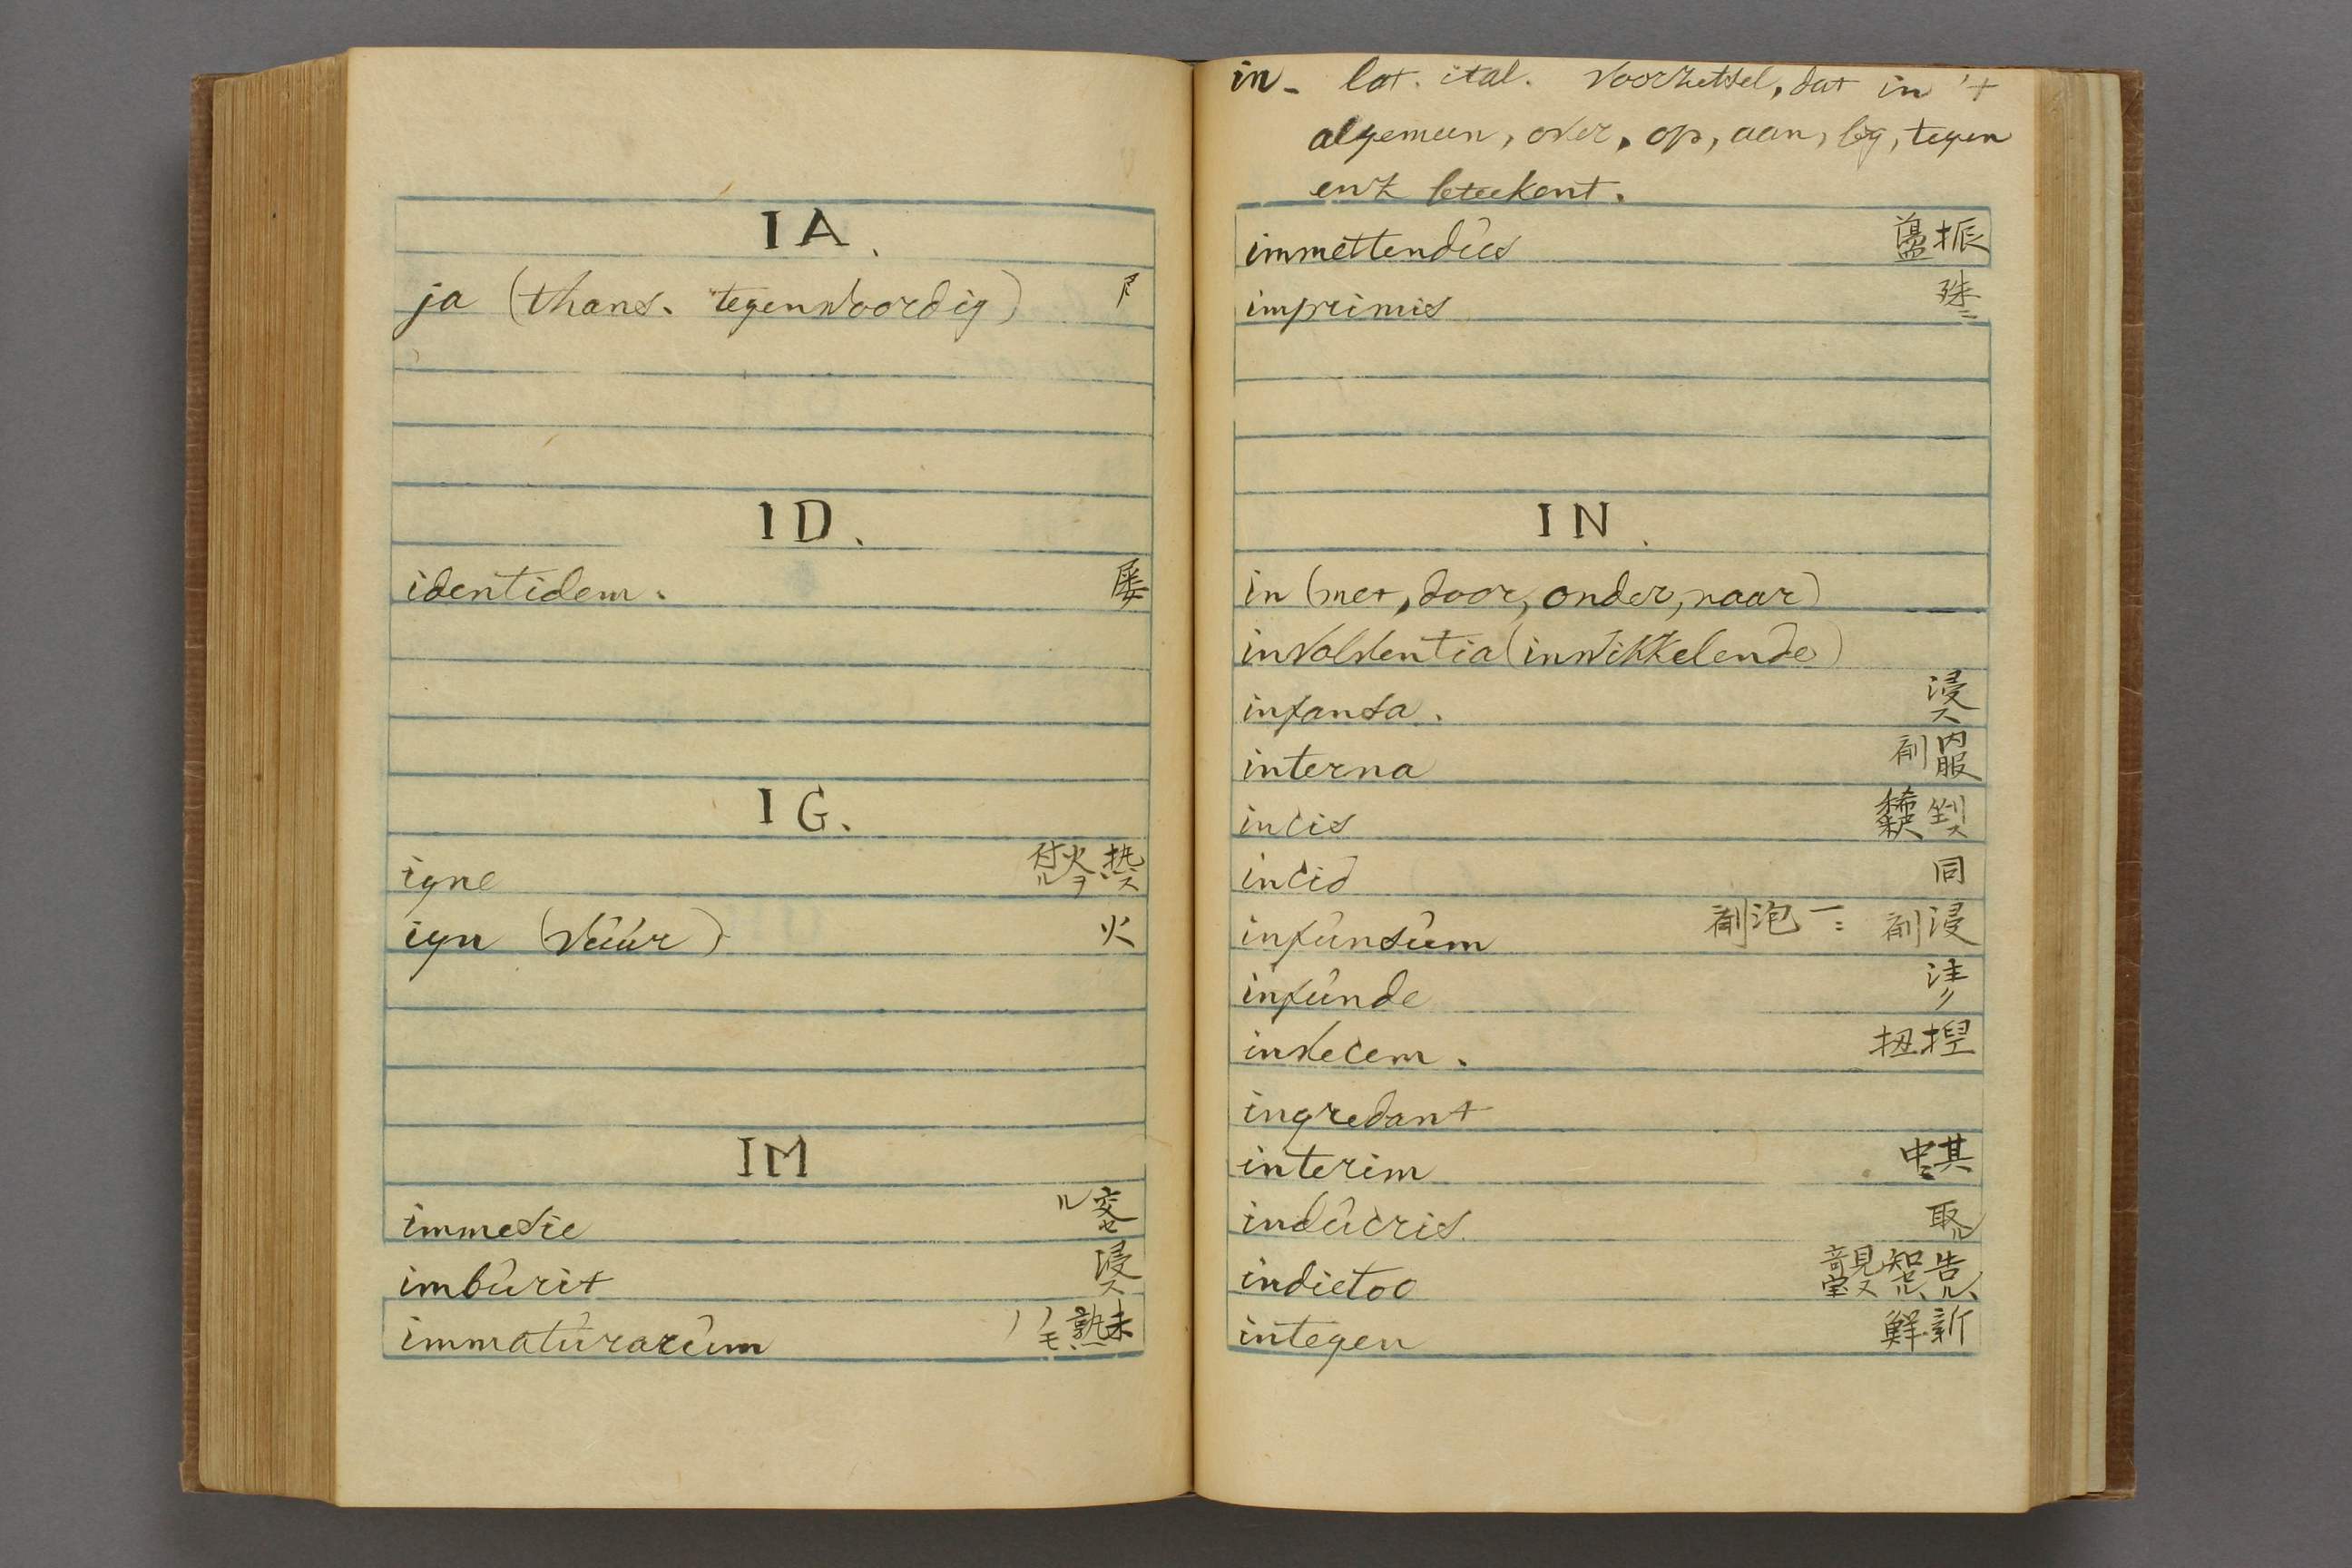 IA.
ja (thans. tegenwoordig)
ID.
identidem. 屡
IG.
igne 熱ス 火ヲ付ル
ign (vúúr) 火
IM
immesie 交セル
imbúrit 浸ス
immatúrarúm 未熟
in- lat. ital. voorzetsel, dat in 't
algemeen, over, op, aan, bij, tegen
enz beteekent.
immettendús 振盪
imprimis 殊ニ
IN.
in (met, door, onder, naar)
involventia (inwikkelende)
infansa. 浸ス
interna 内服剤
incis 剉ス
incid 同
infúnsúm 浸剤 一ニ泡剤
infúnde
invecem. 捏揑
ingredant
interim 其中ニ
indúcris. 取ル
indietoo 告ル
integen 新鮮